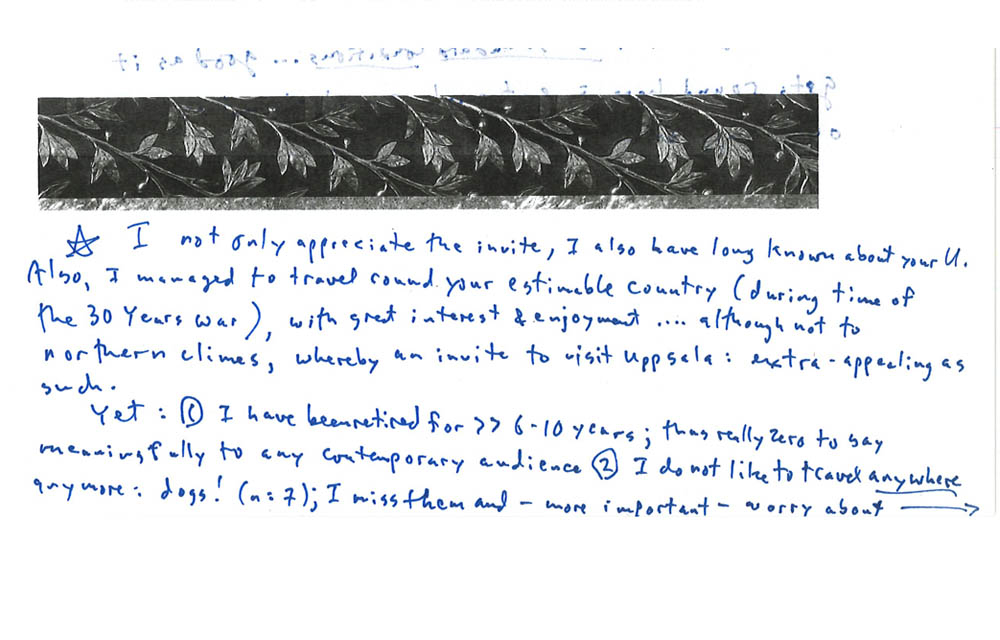 ☆ I not only appreciate the invite, I also have long known about your U.
Also, I managed to travel round your estimable country (during time of
the 30 Years war), with great interest & enjoyment .... although not to
northern climes, whereby an invite to visit Uppsala : extra-appealing as
such.
Yet : ① I have been retired for >> 6-10 years; thus really zero to say
meaningfully to any contemporary audience ② I do not like to travel anywhere
anymore : dogs! (n = 7); I miss them and - more important - worry about →